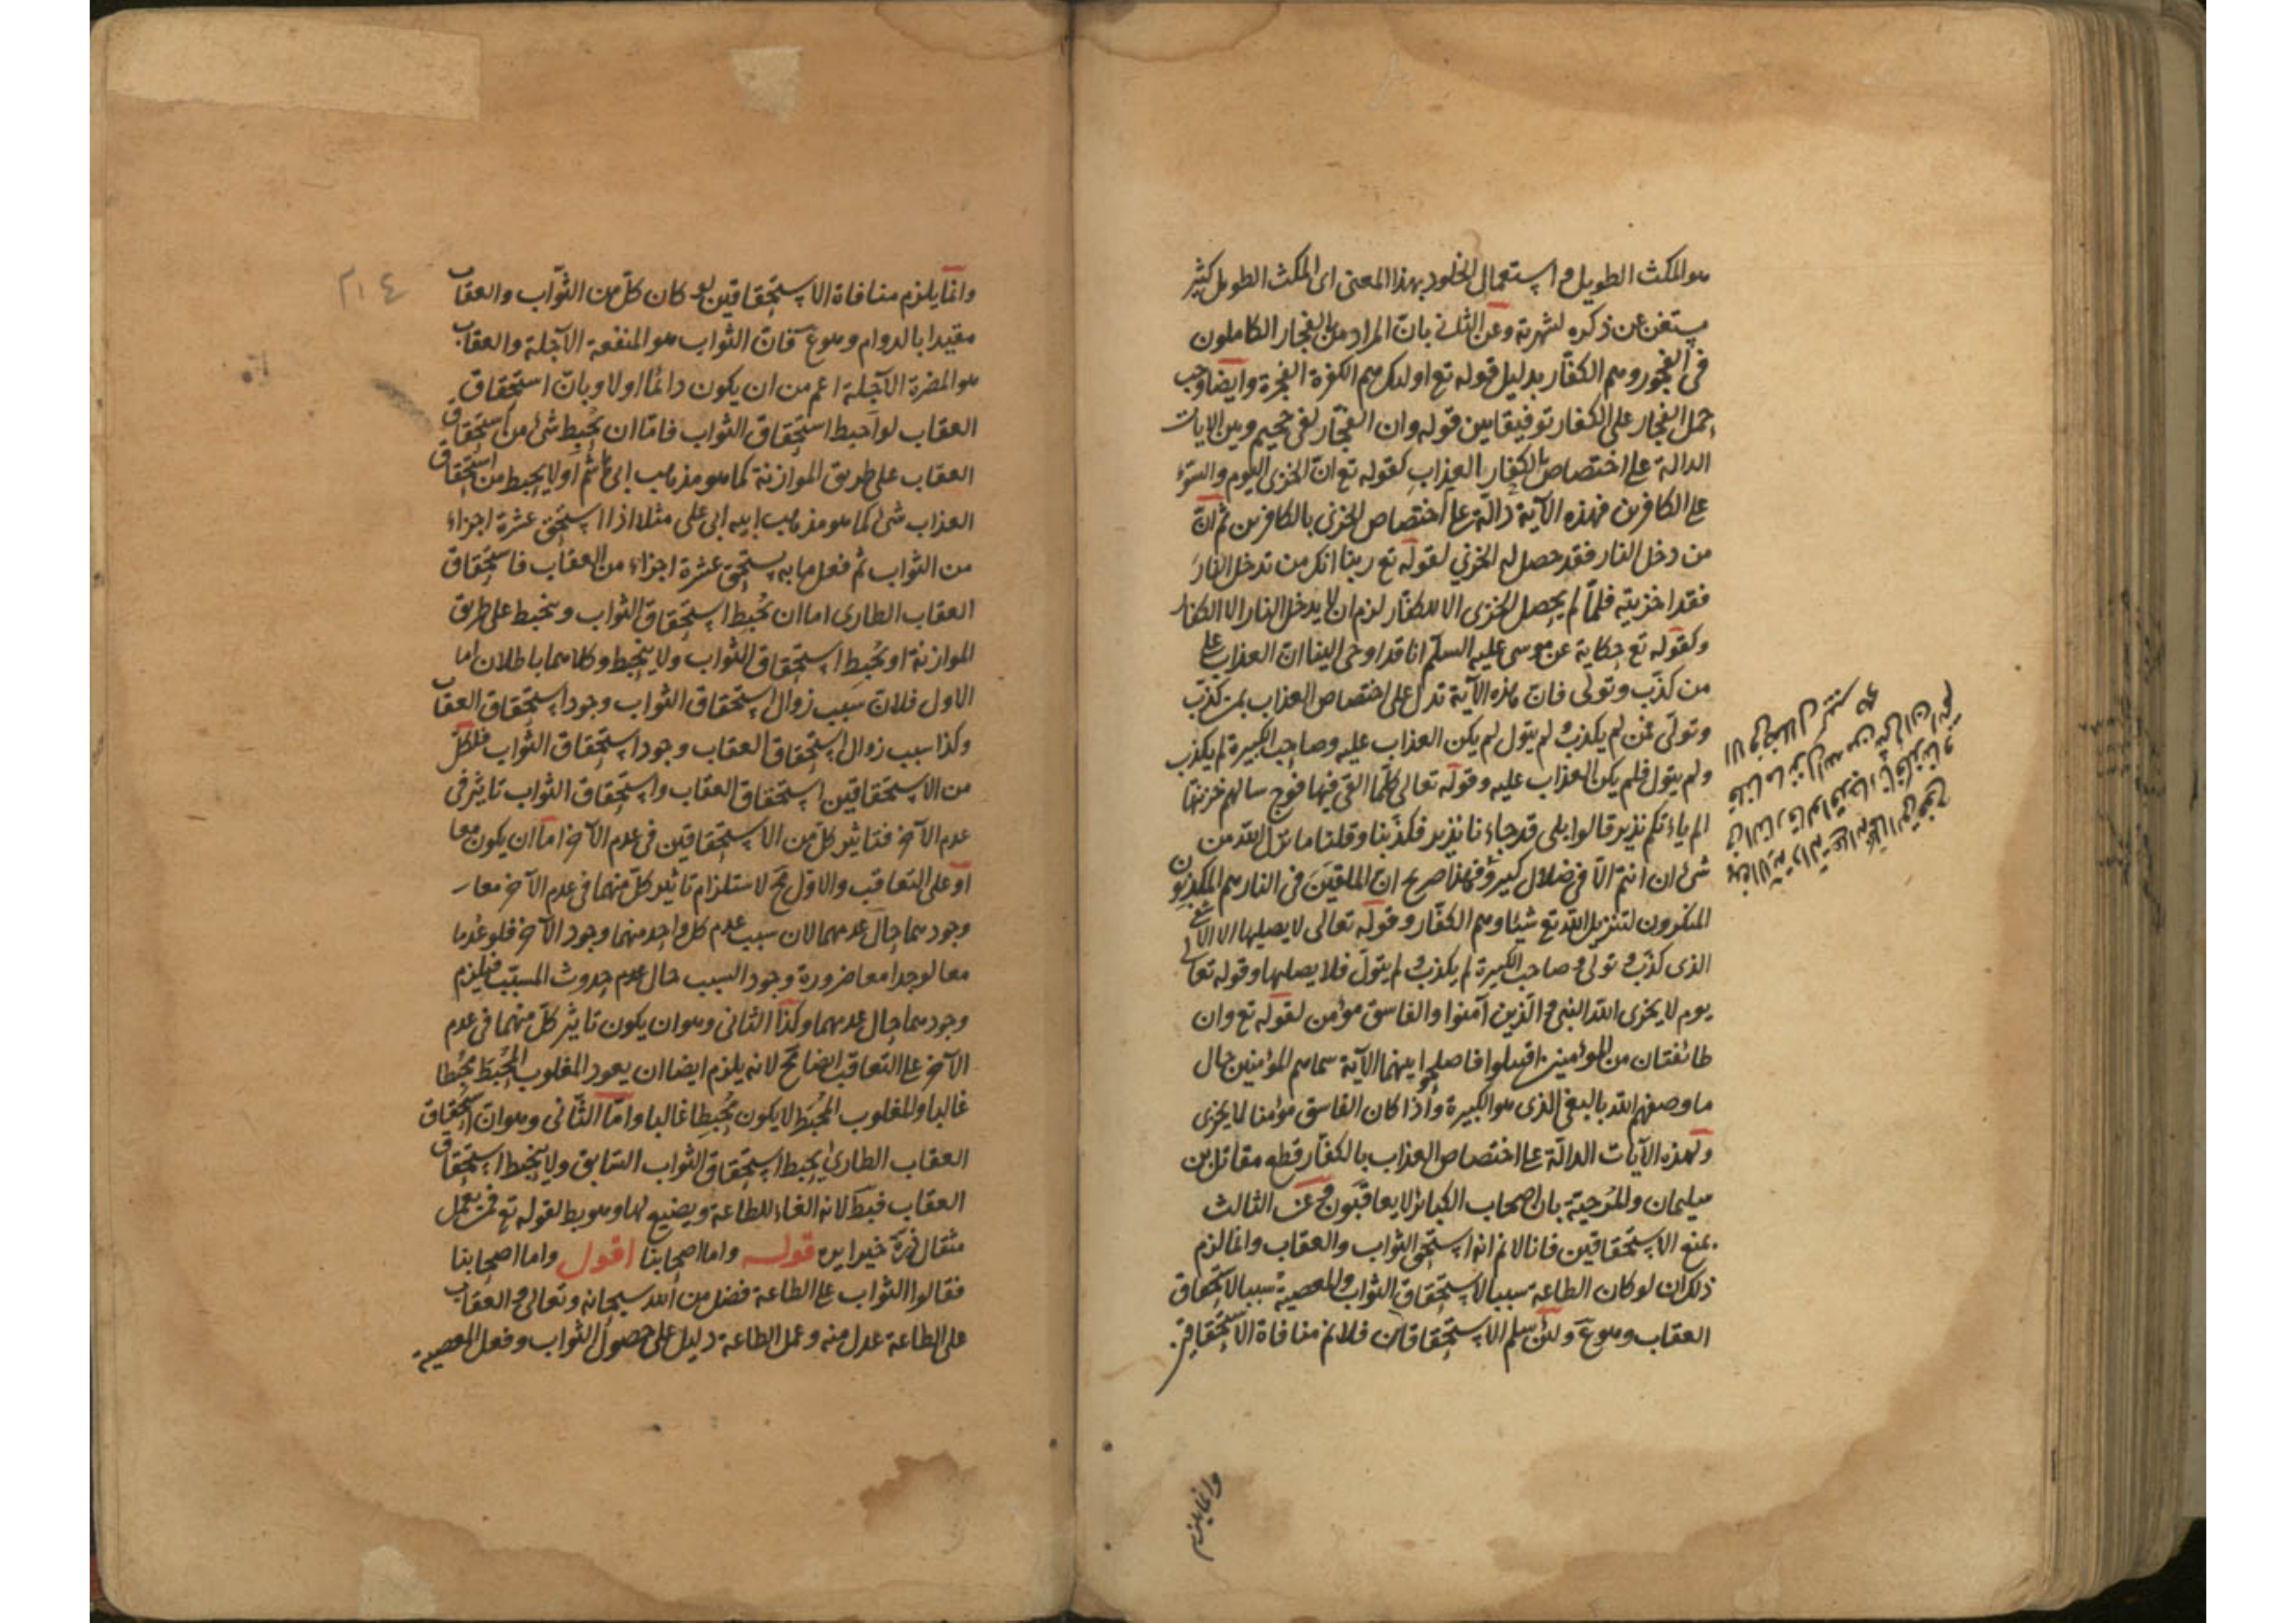 هو المكث الطويل واستعمال الخلود بهذا المعنى اى المكث الطويل كثير
يستغن عن ذكره لشهرته وعن الثانى بان المراد من الفجار الكاملون
فى الفجور وهم الكفار بدليل قوله تع اولئك هم الكفرة الفجرة وايضا وجب
حمل الفجار على الكفار توفيقا بين قوله وان الفجار لفى جحيم وبين الايات
الدالة على اختصاص الكفار بالعذاب كقوله تع ان الخزى اليوم والسوء
على الكافرين فهذه الآية دالة على اختصاص الخزى بالكافرين ثم ان
من دخل النار فقد حصل له الخزي لقوله تع ربنا انك من تدخل النار
فقد اخزيته فلما لم يحصل الخزى الا للكفار لزم ان لا يدخل النار الا الكفار
وكقوله تع حكاية عن موسى عليه السلام انا قد اوحى الينا ان العذاب على
من كذب وتولى فان هذه الآية تدل على اختصاص العذاب بمن كذب
وتولى فمن لم يكذب ولم يتول لم يكن العذاب عليه وصاحب الكبيرة لم يكذب
ولم يتول فلم يكن العذاب عليه وقوله تعالى كلما القى فيها فوج سالهم خزنتها
الم ياءتكم نذير قالوا بلى قد جاءنا نذير فكذبنا وقلنا ما نزل الله من
شئ ان انتم الا فى ضلال كبير فهذا صريح ان الملقين فى النار هم المكذبون
المنكرون لتنزيل الله تع شيئا وهم الكفار وقوله تعالى لا يصليها الا الاشقى
الذى كذب وتولى وصاحب الكبيرة لم يكذب ولم يتول فلا يصليها وقوله تعالى
يوم لا يخزى الله النبى والذين آمنوا والفاسق مؤمن لقوله تع وان
طائفتان من المؤمنين اقتتلوا فاصلحوا بينهما الآية سماهم المؤمنين حال
ما وصفهم الله بالبغى الذى هو الكبيرة واذا كان الفاسق مؤمنا لا يخزى
ولهذه الآيات الدالة على اختصاص العذاب بالكفار قطع مقاتل بن
سليمان والمرجية بان اصحاب الكبائر لا يعاقبون وعن الثالث
بمنع الاستحقاقين فانا لانم انه استحق الثواب والعقاب وانما لزم
ذلك ان لو كان الطاعة سببا لاستحقاق الثواب والمعصية سببا لاستحقاق
العقاب وهو ع ولئن سلم الاستحقاقان فلانم منافاة الاستحقاقين
وانما يلزم
٢١٤
وانما يلزم منافاة الاستحقاقين لو كان كل من الثواب والعقاب
مقيدا بالدوام وهو ع فان الثواب هو المنفعة الآجلة والعقاب
هو المضرة الآجلة اعم من ان يكون دائما اولا وبان استحقاق
العقاب لو احبط استحقاق الثواب فاما ان يحبط شئ من استحقاق
العقاب على طريق الموازنة كما هو مذهب ابى هاشم او لا يحبط من استحقاق
العذاب شئ كما هو مذهب ابيه ابى على مثلا اذا استحق عشرة اجزاء
من الثواب ثم فعل ما به يستحق عشرة اجزاء من العقاب فاستحقاق
العقاب الطارى اما ان يحبط استحقاق الثواب وينحبط على طريق
الموازنة او يحبط استحقاق الثواب ولا ينحبط وكلاهما باطلان اما
الاول فلان سبب زوال استحقاق الثواب وجود استحقاق العقاب
وكذا سبب زوال استحقاق العقاب وجود استحقاق الثواب فلكل
من الاستحقاقين استحقاق العقاب واستحقاق الثواب تاثير فى
عدم الآخر فتاثير كل من الاستحقاقين فى عدم الآخر اما ان يكون معا
او على التعاقب والاول مح لاستلزام تاثير كل منهما فى عدم الآخر معا
وجودهما حال عدمهما لان سبب عدم كل واحد منهما وجود الآخر فلو عدما
معا لوجدا معا ضرورة وجود السبب حال عدم حدوث المسبب فيلزم
وجودهما حال عدمهما وكذا الثانى وهو ان يكون تاثير كل منهما فى عدم
الآخر على التعاقب ايضا مح لانه يلزم ايضا ان يعود المغلوب المحبط محبطا
غالبا والمغلوب المحبط لا يكون محبطا غالبا واما الثانى وهو ان استحقاق
العقاب الطارئ يحبط استحقاق الثواب السابق ولا ينحبط استحقاق
العقاب فبط لانه الغاء للطاعة وتضييع لها وهو بط لقوله تع فمن يعمل
مثقال ذرة خيرا يره قوله واما اصحابنا اقول واما اصحابنا
فقالوا الثواب على الطاعة فضل من الله سبحانه وتعالى والعقاب
على الطاعة عدل منه وعمل الطاعة دليل على حصول الثواب وفعل المعصية